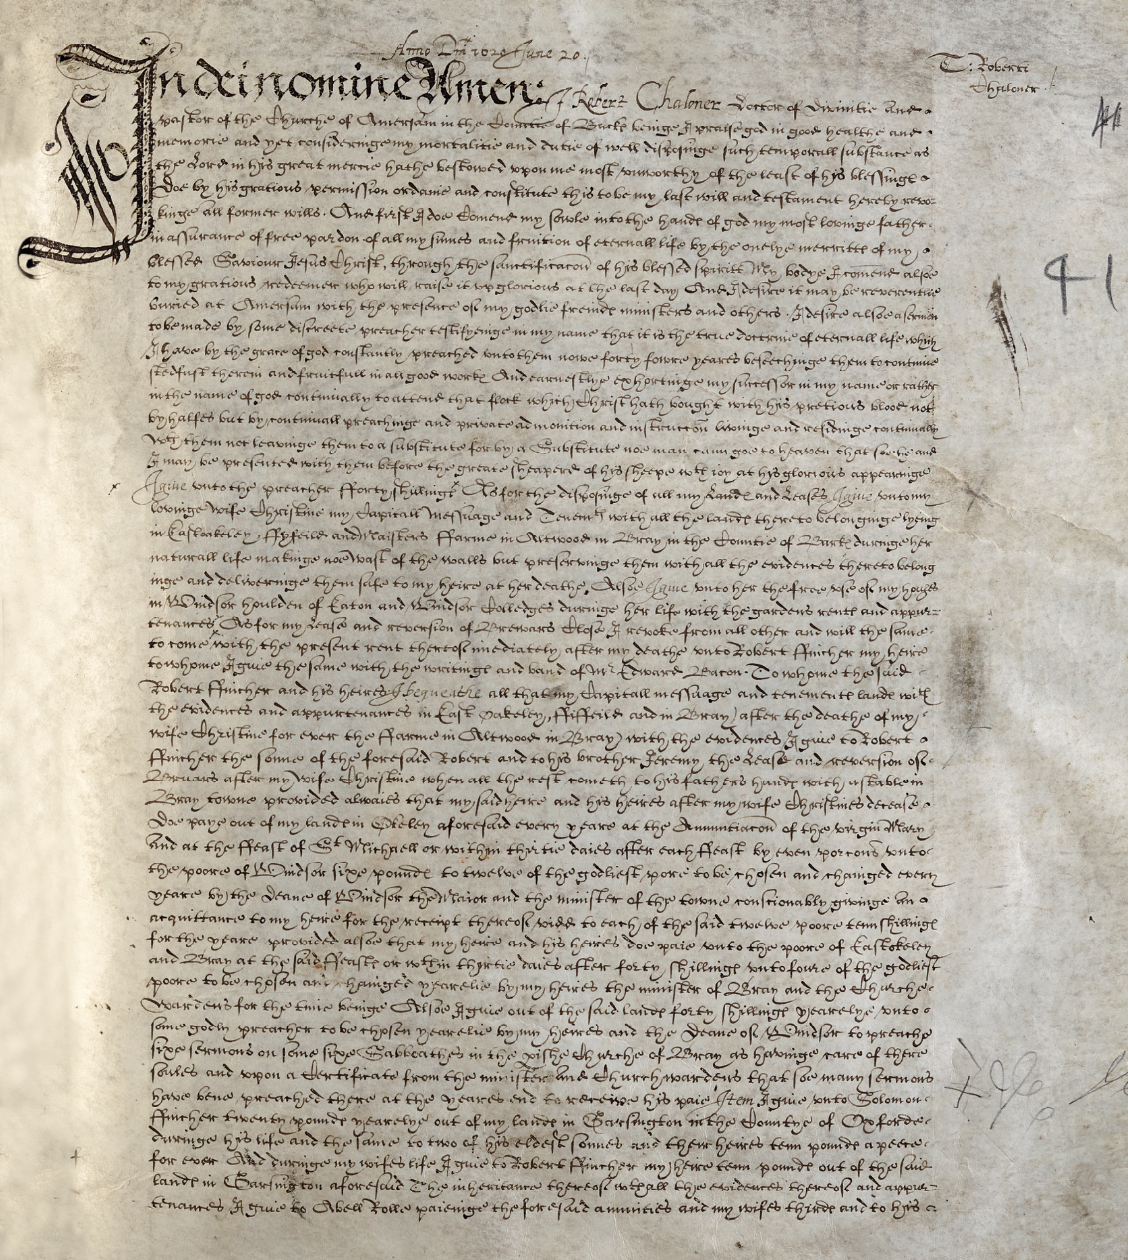 Anno Dni 1620 June 20.
T: Roberti
Chaloner.
In dei nomine Amen: I Robert Chaloner Doctor of Divinitie and
Pastor of the Churche of Amersam in the Countie of Buck beinge I praise god in good healthe and
memorie and yet consideringe my mortalitie and dutie of well disposinge such temporall substance as
the Lord in his great mercie hathe bestowed upon me most unworthy of the least of his blessinge
Doe by his gratious permission ordaine and constitute this to be my last will and testament hereby revo-
kinge all former wills. And first I doe Comend my sowle into the hande of god my most lovinge father
in assurance of free pardon of all my sinnes and fruition of eternall life by the onelye merritte of my
blessed Saviour Jesus Christ, through the sanctificacon of his blessed spiritt My bodye I comend alsoe
to my gratious redeemer who will raise it up glorious at the last day And I desire it may be reverentlie
buried at Amersam with the presence of my godlie freinde ministers and others. I desire alsoe a sermon
to be made by some discreete preacher testifyeinge in my name that it is the true doctrine of eternall life which
I have by the grace of god constantly preached unto them nowe forty fowre yeares beseechinge them to continue
stedfast therein and fruitfull in all good worke And earnestlye exhortinge my successor in my name or rather
in the name of god continually to attend that flock which Christ hath bought with his pretious blood not
by halfes but by continuall preachinge and private admonition and instruccon livinge and residinge continually
wth them not leavinge them to a substitute for by a Substitute noe man cann goe to heaven that soe he and
I may be presented with them before the great sheapered of his sheepe wth ioy at his glorious appearinge
I give unto the preacher fforty shillinge As for the disposinge of all my Lande and Leases I give unto my
lovinge wife Christine my Capitall Messuage and Tenemte with all the lande thereto belonginge lyeing
in East oakeley, ffyfeild and Maisters Ffarme in Altwood in Bray in the Countie of Barke duringe her
naturall life makinge noe wast of the walls but preservinge them with all the evidences thereto belong
inge and deliveringe them safe to my heire at her deathe, Alsoe I give unto her the free use of my howses
in Windsor houlden of Eaton and Windsor Colledges duringe her life with the gardens rente and appur-
tenances As for my Lease and reversion of Brewars Close I revoke from all other and will the same
to come with the present rent thereof imediately after my deathe unto Robert ffincher my heire
to whome I give the same with the writinge and band of Mr Edward Bacon. To whome the said
Robert ffincher and his heires I bequeathe all that my Capitall messuage and tenemente lande with
the evidences and appurtenances in East Oakeley, ffiffeild and in Bray) after the deathe of my
wife Christine for ever the ffarme in Altwood in Bray) with the evidences I give to Robert
ffincher the sonne of the foresaid Robert and to his brother Jeremy the Lease and reversion of
Bruars after my wife Christine when all the rest cometh to his fathers hande with a stable in
Bray towne provided alwaies that my said heire and his heires after my wife Christines decease
Doe paye out of my lande in Okeley aforesaid every yeare at the Annuntiacon of the virgin Mary
and at the ffeast of St Michaell or within thirtie daies after each ffeast by even porcons unto
the poore of Windsor sixe pounde to twelve of the godliest pore to be chosen and chainged every
yeare by the Deane of Windsor the Maior and the minister of the towne conscionably givinge an
acquittance to my heire for the receipt thereof vidd to each of the said twelve poore tenn shillinge
for the yeare provided alsoe that my heire and his heires doe paie unto the poore of Eastokeley
and Bray at the said ffeaste or wthin thirtie daies after forty shillinge unto foure of the godliest
poore to be chosen and chainged yearelie by my heires the minister of Bray and the Churche
Wardens for the time beinge Alsoe I give out of the said lande forty shillinge yearelye unto
some godly preacher to be chosen yearelie by my heires and the Deane of Windsor to preache
sixe sermons on some sixe Sabboathes in the pishe Churche of Bray as havinge care of there
soules and upon a Certificate from the minister and Churchwardens that soe many sermons
have bene preached there at the yeares end to receive his paie Item I give unto Solomon
ffincher twenty pounde yearelye out of my lande in Garsington in the Countye of Oxforde
duringe his life and the same to two of his eldest sonnes and their heires tenn pounde apeece
for ever And duringe my wifes life I give to Robert ffincher my heire tenn pounde out of the said
lande in Garsington aforesaid The inheritance thereof with all the evidences thereof and appur-
tenances I give to Abell Rolle paieinge the foresaid annuities and my wifes thirde and to his
41